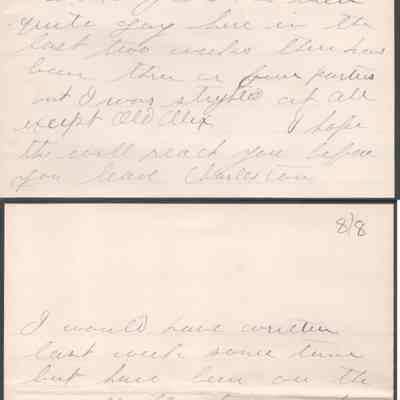 quite gay here in the
last two weeks there has
been three or four parties
but I was at all
except Old Alex I hope
this will reach you before
you leave Charleston
8/8
I would have written
last week some time
but have been on the